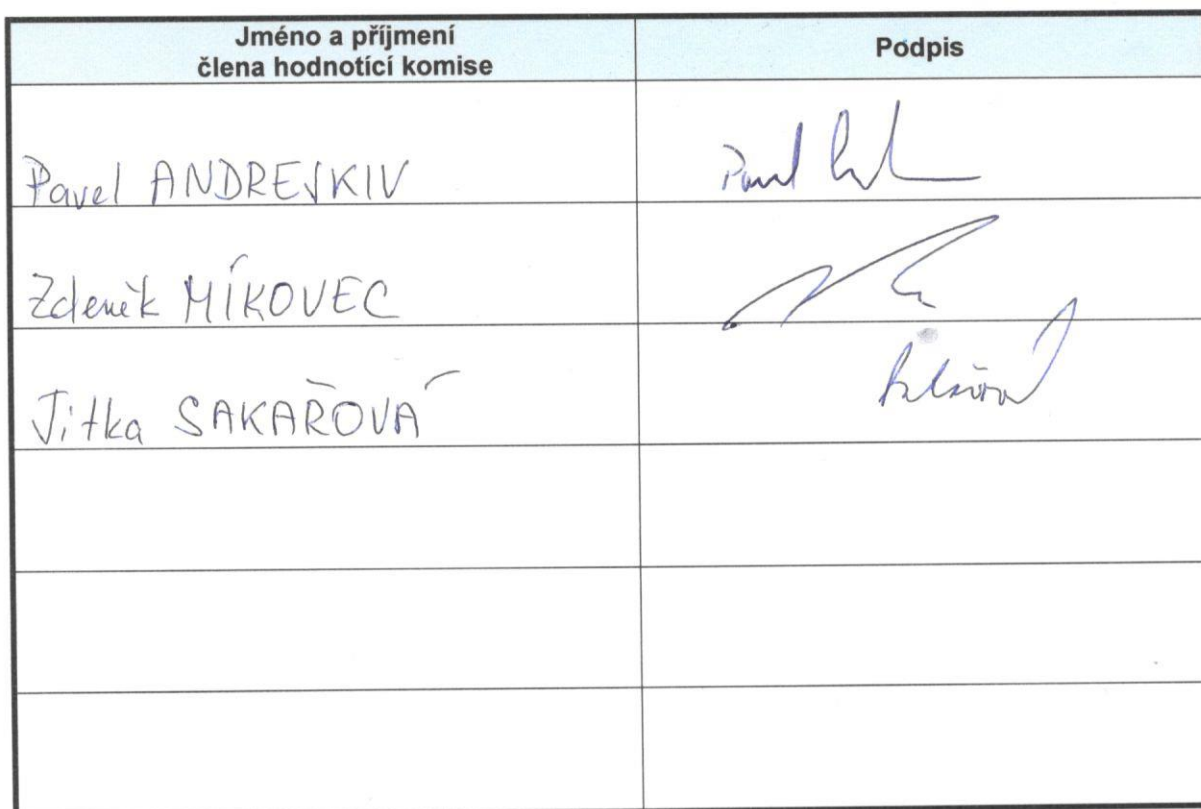 Jméno a příjmení
člena hodnotící komise
Podpis
Pavel ANDREJKIV
Pavel
Zdeněk MÍKOVEC
Jitka SAKAŘOVÁ